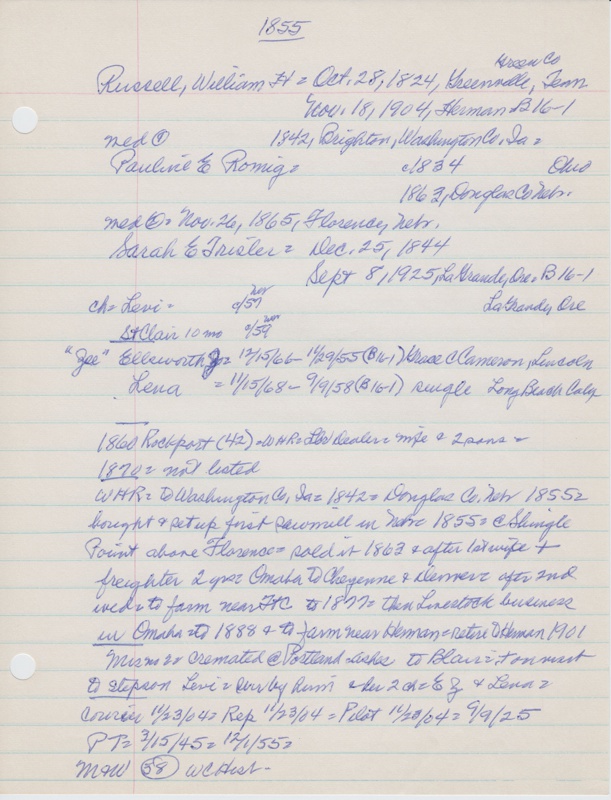 1855
Green Co
Russell, William H = Oct. 28, 1824, Greenville, Tenn
Nov. 18, 1904, Herman B 16-1
med ① 1842, Brighton, Washington Co, Ia =
Pauline E Romig = c1834 Ohio
1863, Douglas Co Nebr.
med ② = Nov. 26, 1865, Florence, Nebr.
Sarah E Trisler = Dec. 25, 1844
Sept 8, 1925, La Grande, Ore = B 16-1
ch = Levi = c/57 Nebr La Grande, Ore
St Clair 10 mo c/59 Nebr
"Zee" Ellsworth Z = 12/15/66 - 11/29/55 (B16-1) Grace C Cameron, Lincoln
Lena = 11/15/68 - 9/9/58 (B16-1) single Long Beach Calif
1860 Rockport (42) = WHR = Lbr Dealer = wife & 2 sons =
1870 = not listed
WHR = to Washington Co, Ia = 1842 = Douglas Co, Nebr 1855 =
bought & set up first sawmill in Nebr = 1855 = @ Shingle
Point above Florence = sold it 1863 & after 1st wife +
freighter 2 yrs = Omaha to Cheyenne & Denver = after 2nd
wed = to farm near FtC to 1877 = then Livestock business
in Omaha = to 1888 & to farm near Herman = retire to Herman 1901
Mrs no 2 = cremated @ Portland & ashes to Blair =
to stepson Levi = surv by him & her 2 ch = E Z & Lena =
Courier 11/23/04 = Rep 11/23/04 = Pilot 11/23/04 = 9/9/25
PT = 3/15/45 = 12/1/55 =
M&W 58 WC Hist -